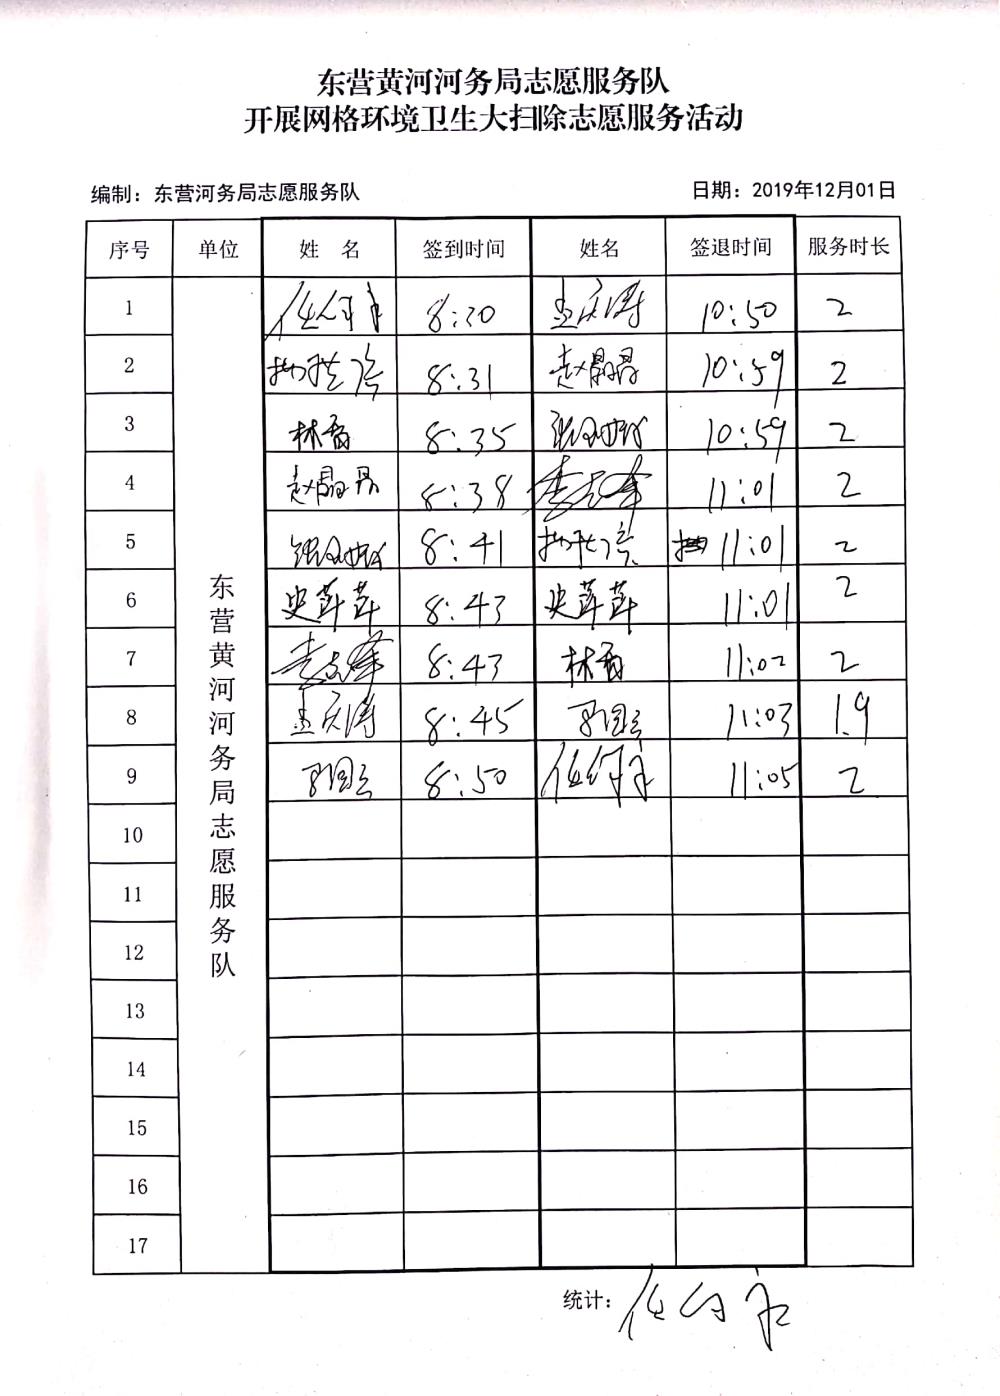 东营黄河河务局志愿服务队
开展网格环境卫生大扫除志愿服务活动
编制：东营河务局志愿服务队 日期：2019年12月01日
序号 单位 姓 名 签到时间 姓名 签退时间 服务时长
东营黄河河务局志愿服务队
1 8:30 孟庆涛 10:50 2
2 8:31 赵晶晶 10:59 2
3 林香 8:35 10:59 2
4 赵晶晶 8:38 李志峰 11:01 2
5 8:41 11:01 2
6 史萍萍 8:43 史萍萍 11:01 2
7 李志峰 8:43 林香 11:02 2
8 孟庆涛 8:45 11:03 1.9
9 8:50 11:05 2
10
11
12
13
14
15
16
17
统计：